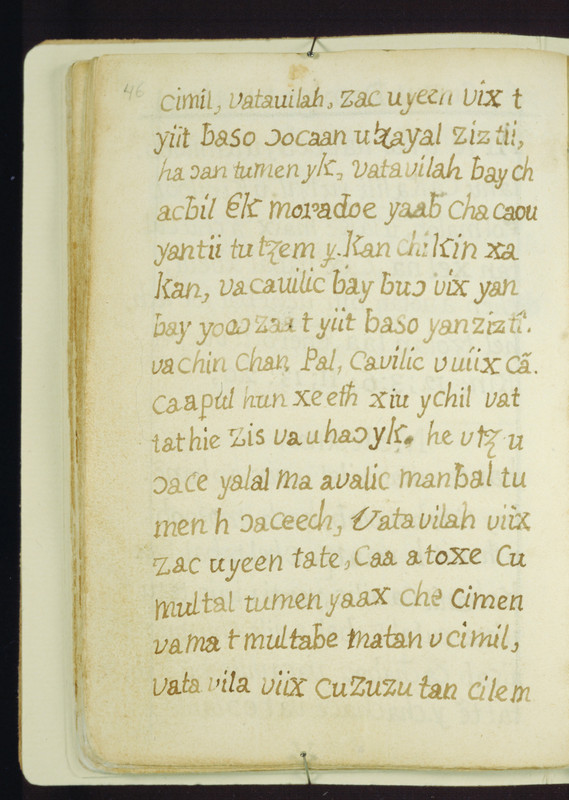 46
cimil, vatauilah, zac uyeen vix t
yiit baso ɔocaan u tzayal ziz tii,
ha ɔan tumen yk, vatavilah bay ch
acbil Ek moradoe yaab cha caou
yantii tu tzem y. Kan chikin xa
kan, vacauilic bay buɔ vix yan
bay yoɔ zaa t yiit baso yan ziz ti.
va chin chan Pal, cavilic v uiix cã.
caa pul hun xeeth xiu ychil vat
tat hie zis va u haɔ yk. he vtz u
ɔace yalal ma avalic manbal tu
men h ɔaceech, Vatavilah viix
zac uyeen tate, Caa atoxe Cu
multal tumen yaax che cimen
vama t multabe matan v cimil,
vata vila viix cuzuzu tan cilem